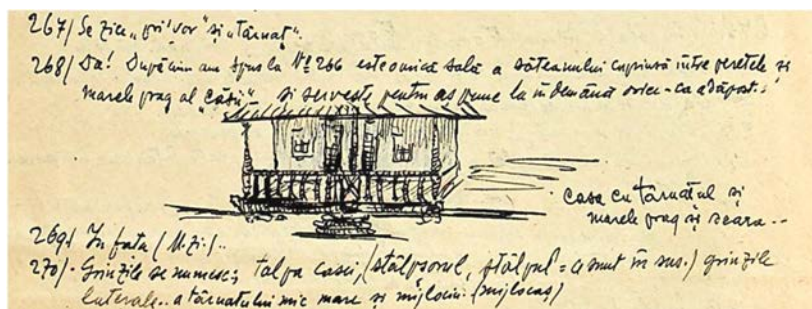 267/ Se zice „pri'vor" și „târnaț".
268/ Da! După cum am spus la № 266 este o mică sală a săteanului cuprinsă între peretele și
marele prag al „căsii" și servește pentru a-și pune la îndemână orice - ca adăpost..
casa cu târnațul și
marele prag și scara..
269/ În fața (M.zi.)..
270/. Grinzile se numesc: talpa casei, (stâlpșorul, stâlpul = ce sunt în sus.) grinzile
laterale.. a târnatului mic mare și mijlociu (mijlocaș)